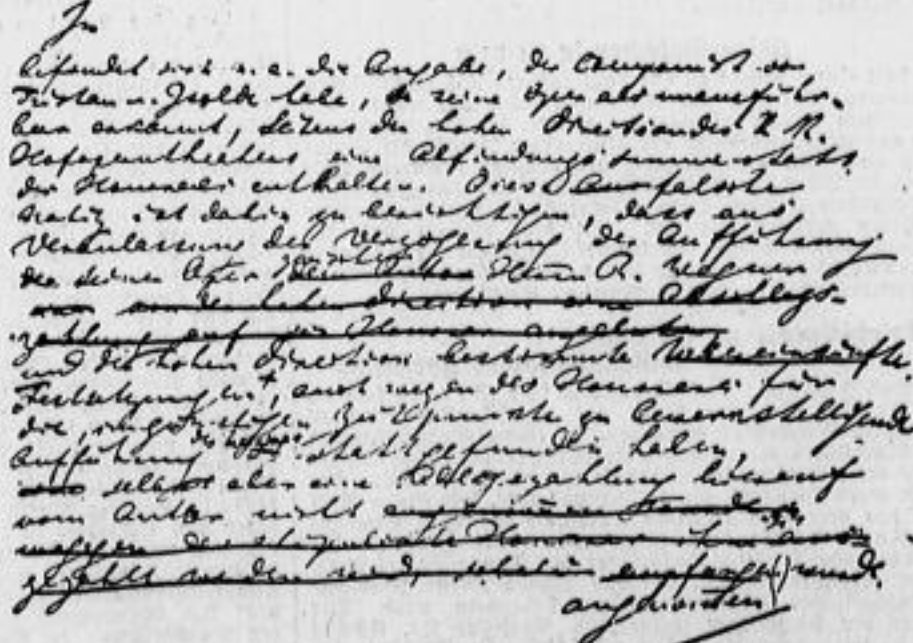 In
befindet sich u. a. die Angabe, der Componist von
Tristan u. Isolde habe, da seine Oper als unausführ-
bar erkannt, Seitens der hohen Direction des K. K.
Hofoperntheaters eine Abfindungssumme statt
des Honorares enthalten. Diese falsche
Notiz ist dahin zu berichtigen, dass aus
Veranlassung der Verzögerung der Aufführung
der seinen Oper zwischen Herrn R. Wagner
von der hohen Direction eine Abschlags-
zahlung auf das Honorar angeboten
und der hohen Direction bestimmte Uebereinkünfte
Festsetzungen, auch wegen des Honorares für
die, zu Zeitpunkte zu bewerkstelligende
Aufführung statt gefunden haben,
eine Abschlagszahlung hierauf
vom Autor nicht
wogegen das stipulirte Honorar ihm aus-
gezahlt werden wird, empfangen wurde.
angenommen